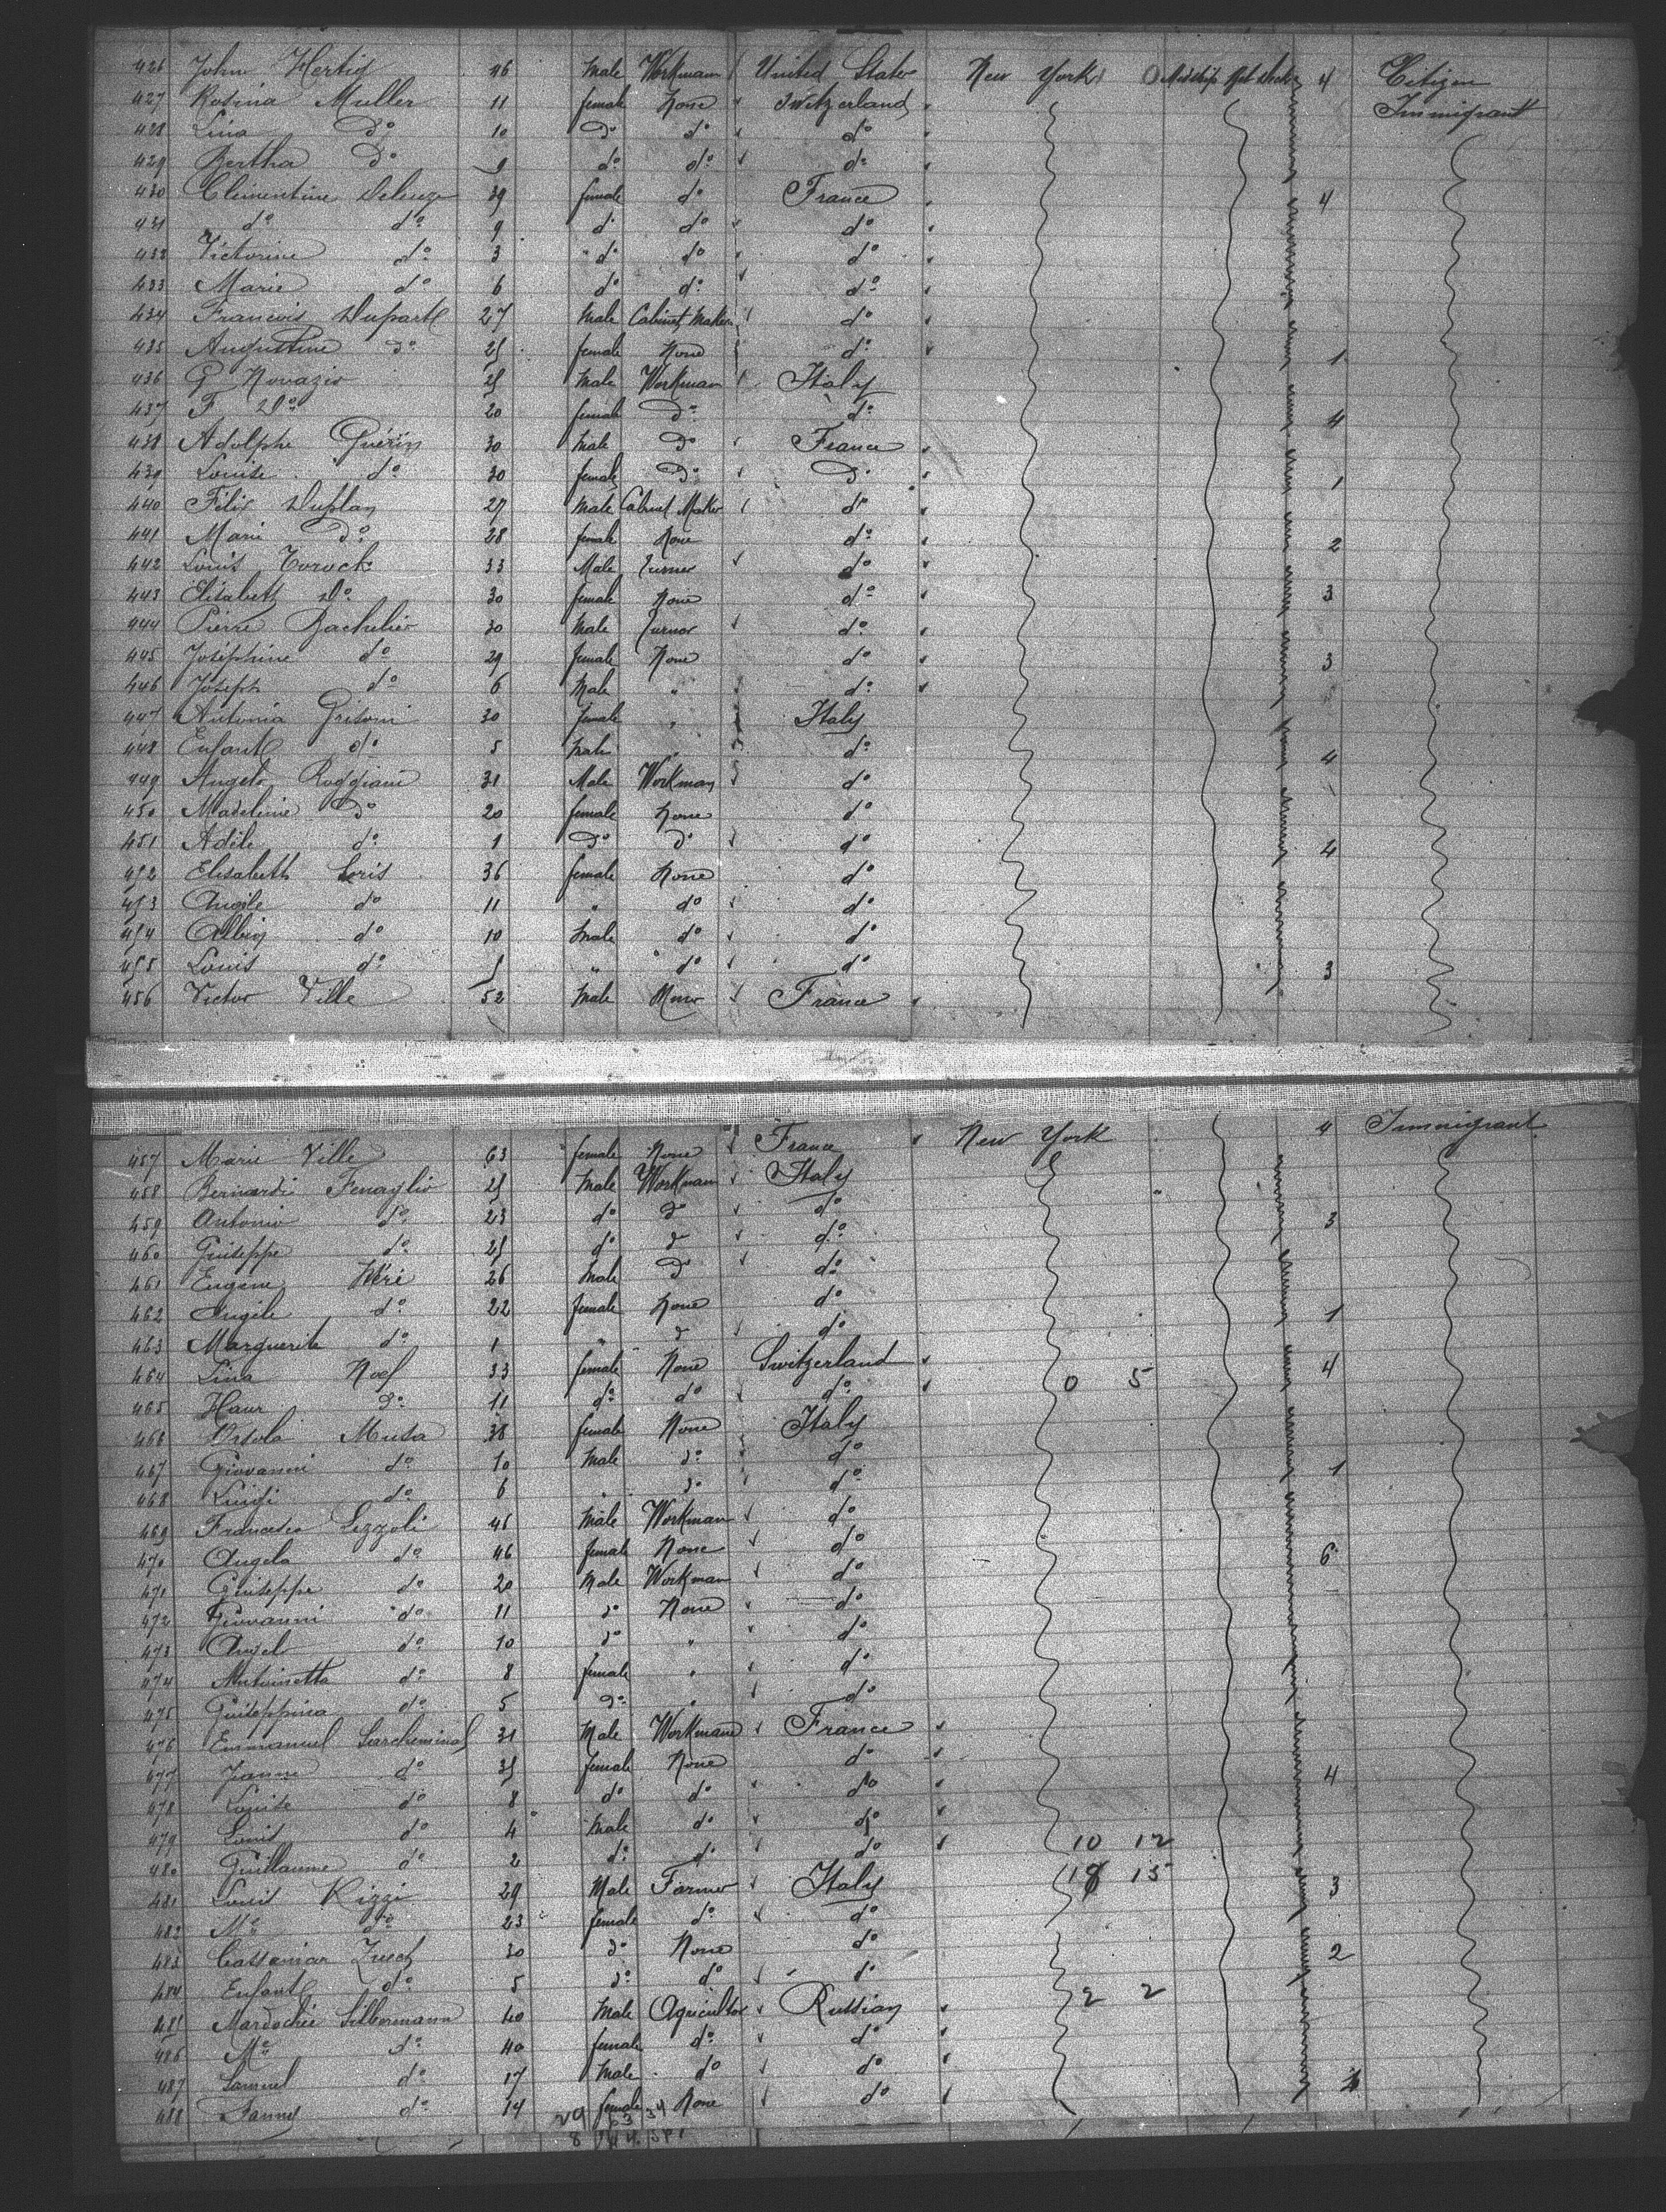 426 John Hertig 46 Male Workman United States New York Midship 4 Citizen
427 Rosina Muller 11 female None Switzerland Immigrant
428 Lina do 10 do do do
429 Bertha do 9 do do do
430 Clementine 39 female do France 4
431 do do 9 d do do
432 Victorine do 3 do do do
433 Marie do 6 do do do
434 Francois 27 Male Cabinet Maker do
435 Augustine do 25 female None do 1
436 G Novazio 25 Male Workman Italy
437 F Do 20 female do do 4
438 Adolphe Guérin 30 Male do France
439 Louise do 30 female do do 1
440 Félix Duplan 27 Male Cabinet Maker do
441 Marie do 28 female None do 2
442 Louis 33 Male Turner do
443 Elisabeth Do 30 female None do 3
444 Pierre Bachelier 30 Male Turnor do
445 Joséphine do 29 female None do 3
446 Joseph do 6 Male " do
447 Antonia Grisoni 30 female " Italy
448 Enfant do 5 Male " do 4
449 Angelo Roggiani 31 Male Workman do
450 Madeleine do 20 female None do
451 Adèle do 1 do do do 4
452 Elisabeth Loris 36 female None do
453 Angèle do 11 " do do
454 Albin do 10 Male do do
455 Louis do 5 " do do 3
456 Victor Ville 52 Male France
457 Marie Ville 63 female None France New York 4 Immigrant
458 Bernardi Fenaglio 25 Male Workman Italy
459 Antonio do 23 do do do 3
460 Giuseppe do 25 do do do
461 Eugene 26 Male do do
462 Angele do 22 female None do 1
463 Marguerite do 1 " d do
464 Lina Noef 33 female None Switzerland 0 5 4
465 do 11 do do do
466 Orsola Musa 38 female None Italy
467 Giovanni do 10 Male do do 1
468 Luigi do 6 " do do
469 Francesco Lezzoli 45 Male Workman do
470 Angela do 46 female None do 6
471 Giuseppe do 20 Male Workman do
472 Giovanni do 11 do None do
473 Angelo do 10 do " do
474 Antoinetta do 8 female " do
475 Guiseppina do 5 do " do
476 Emmanuel 31 Male Workman France
477 Jeanne do 35 female None do 4
478 Louise do 8 do do do
479 Louis do 4 Male do do
480 Guillaume do 2 do do do 10 12
481 Louis Rizzi 29 Male Farmer Italy 18 15 3
482 Me do 23 female do do
483 30 do None do 2
484 Enfant do 5 do do do
485 Mardochée Silbermann 40 Male Agricultor Russian 2 2
486 Me do 40 female do do
487 Samuel do 17 Male do do
488 Fanny do 14 female None do
29 53 34
8